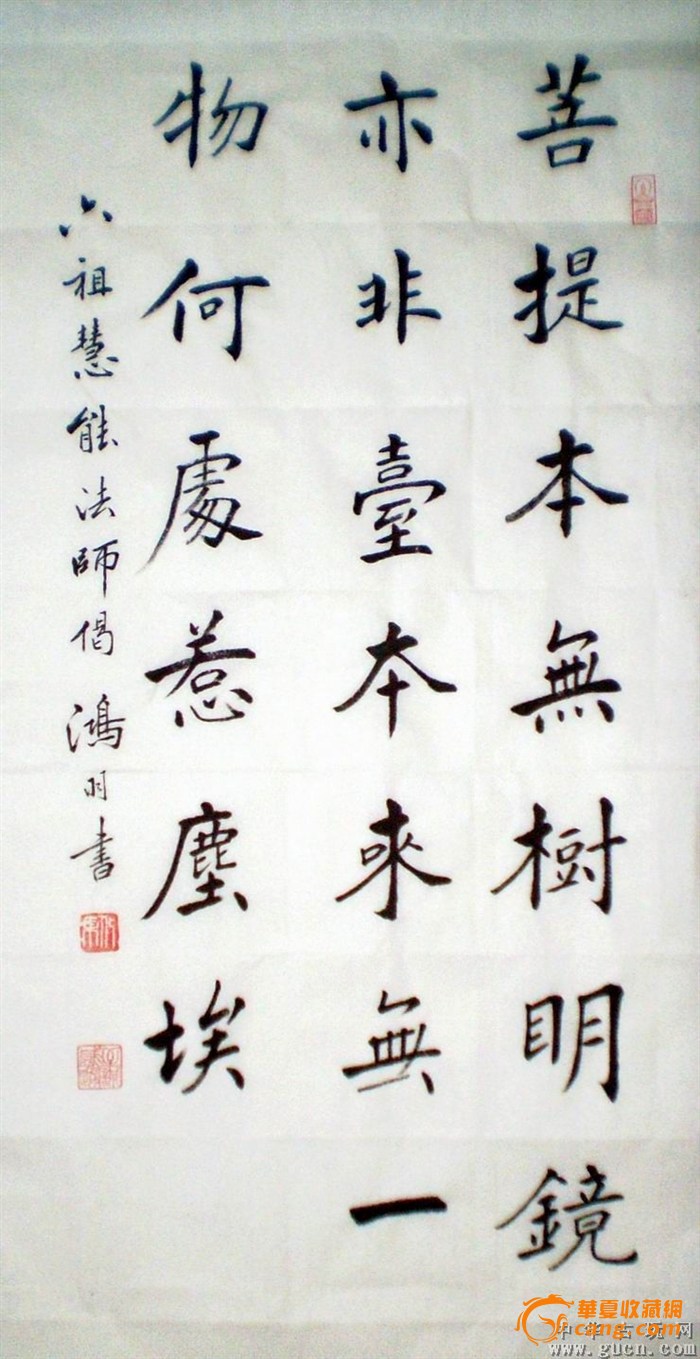 菩提本無樹明鏡
亦非臺本来無一
物何處惹塵埃
六祖慧能法師偈 鴻羽書
華夏收藏網
cang.com
中华古玩网
www.gucn.com